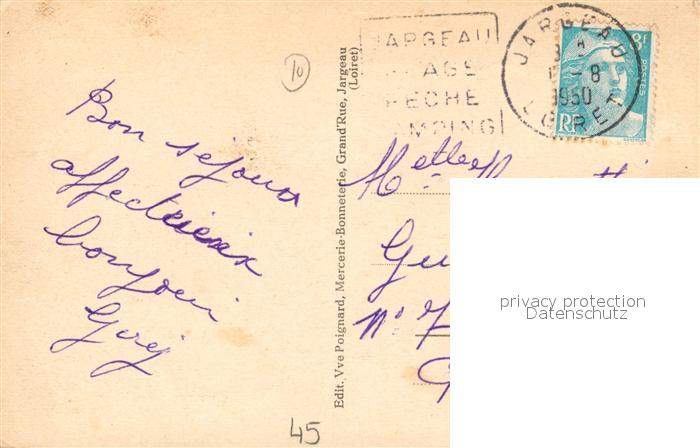 10
JARGEAU
PLAGE
PECHE
CAMPING
JARGEAU
8
1950
LOIRET
8F
POSTES
RF
Bon sejour
affectueux
bonjour
Edit. Vve Poignard, Mercerie-Bonneterie, Grand'Rue, Jargeau
(Loiret)
M et M
Gu
N° 7
45
privacy protection
Datenschutz